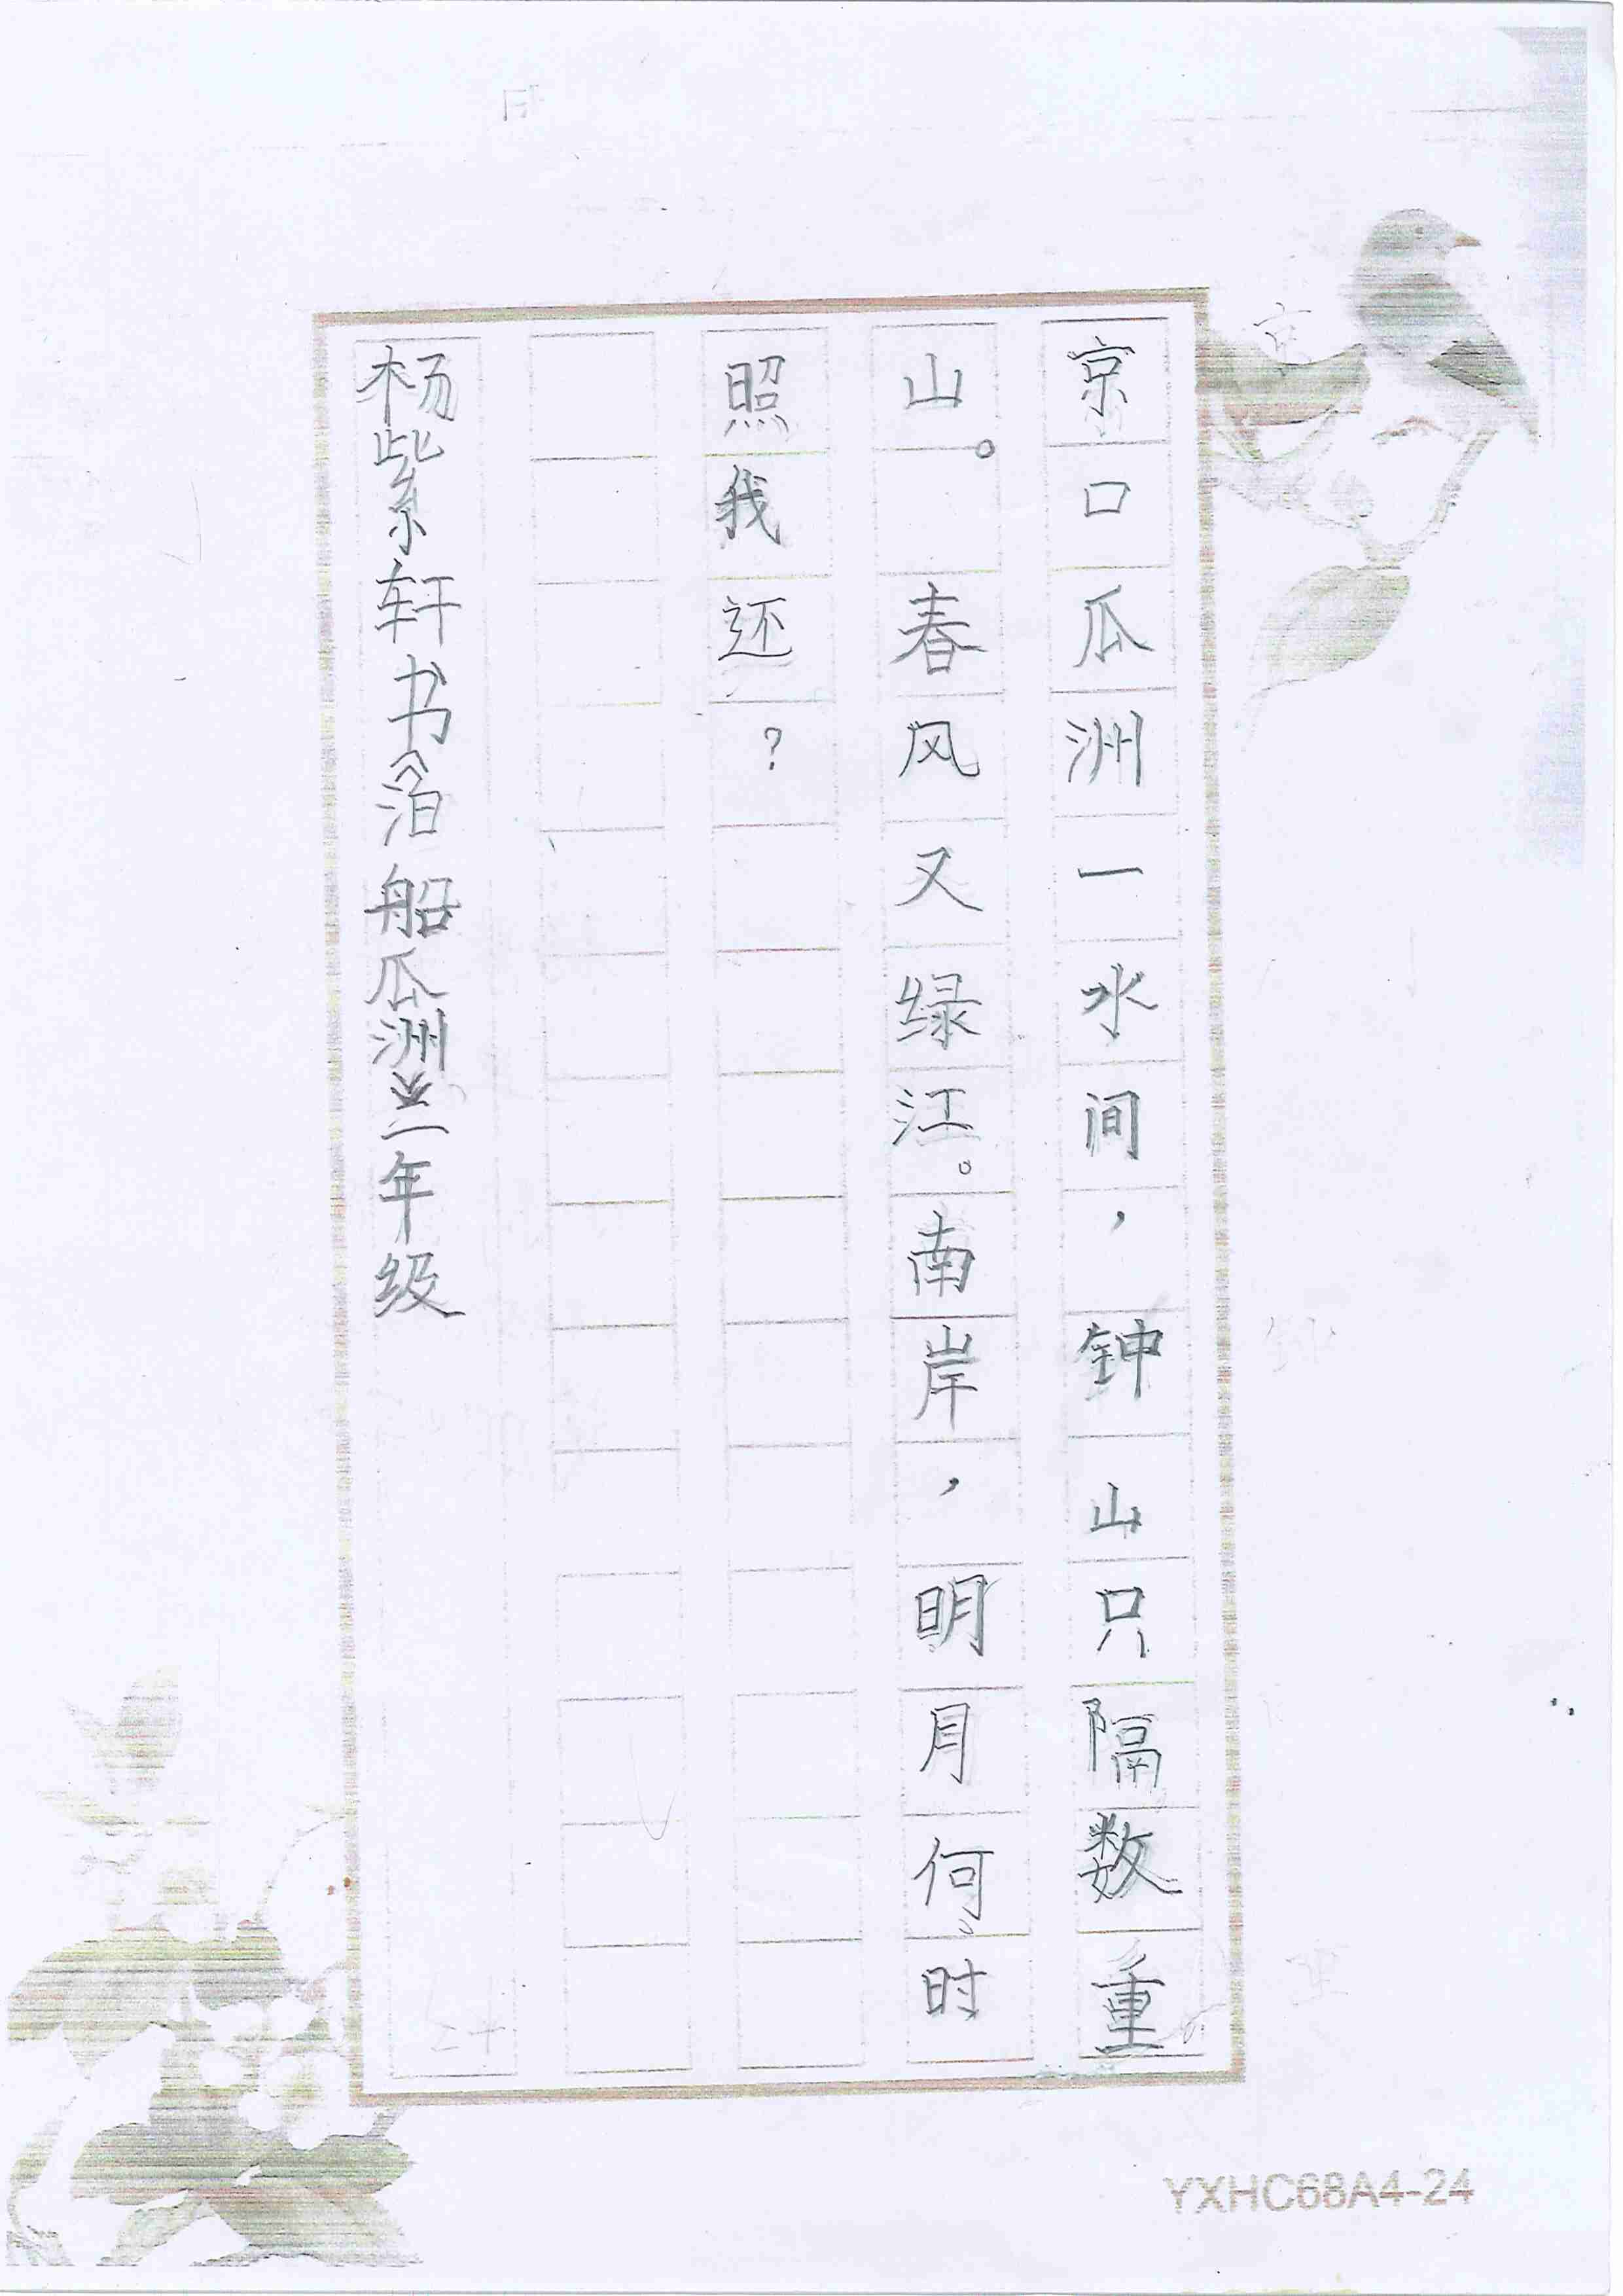 京口瓜洲一水间，钟山只隔数重
山。春风又绿江。南岸，明月何时
照我还？
杨紫轩书《泊船瓜洲》二年级
YXHC68A4-24